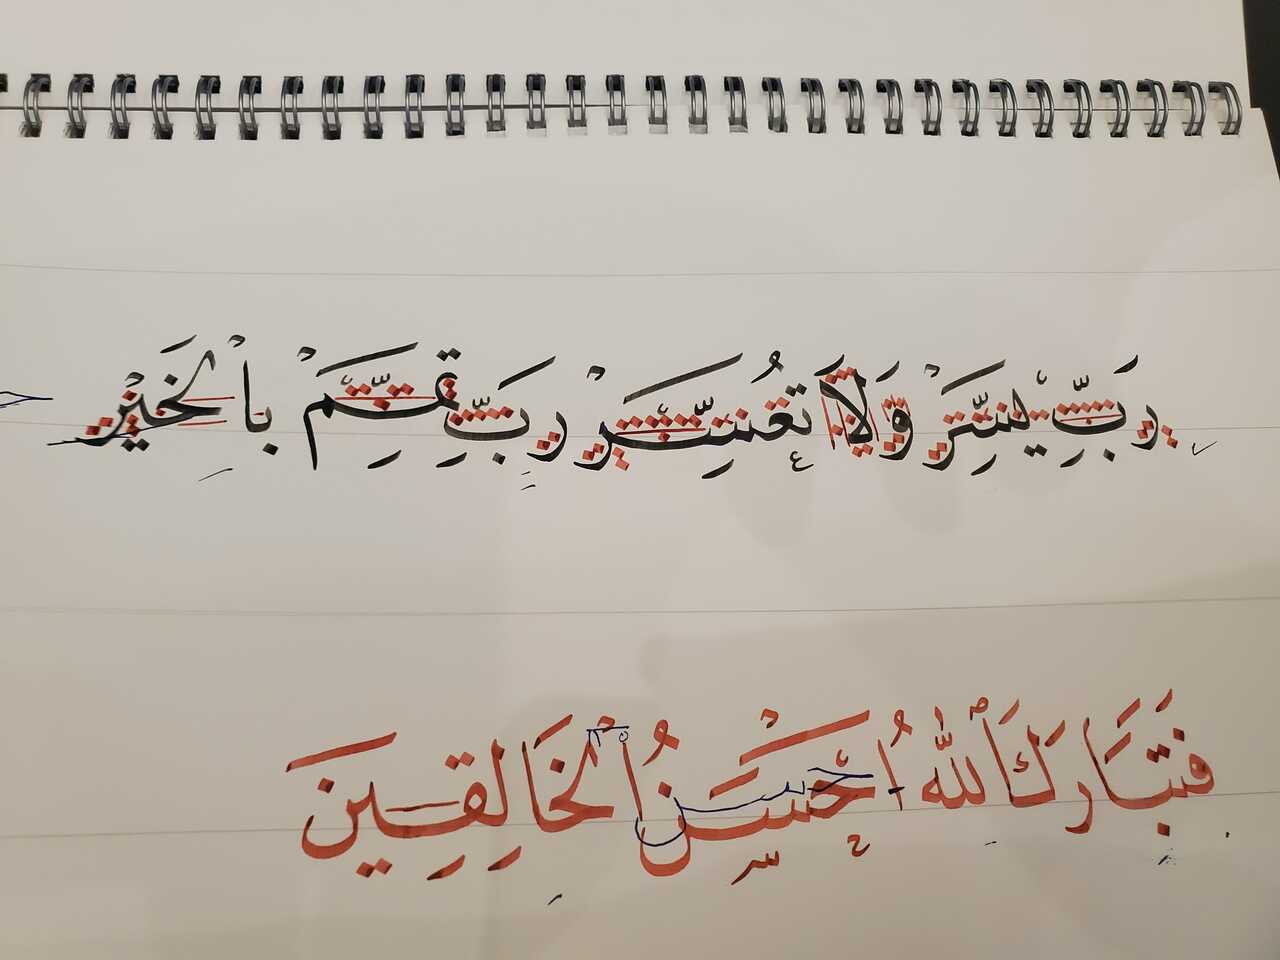 رَبِّ يَسِّرْ وَلَا تُعَسِّرْ رَبِّ تَمِّمْ بِالْخَيْرِ
فَتَبَارَكَ اللَّهُ أَحْسَنُ الْخَالِقِينَ